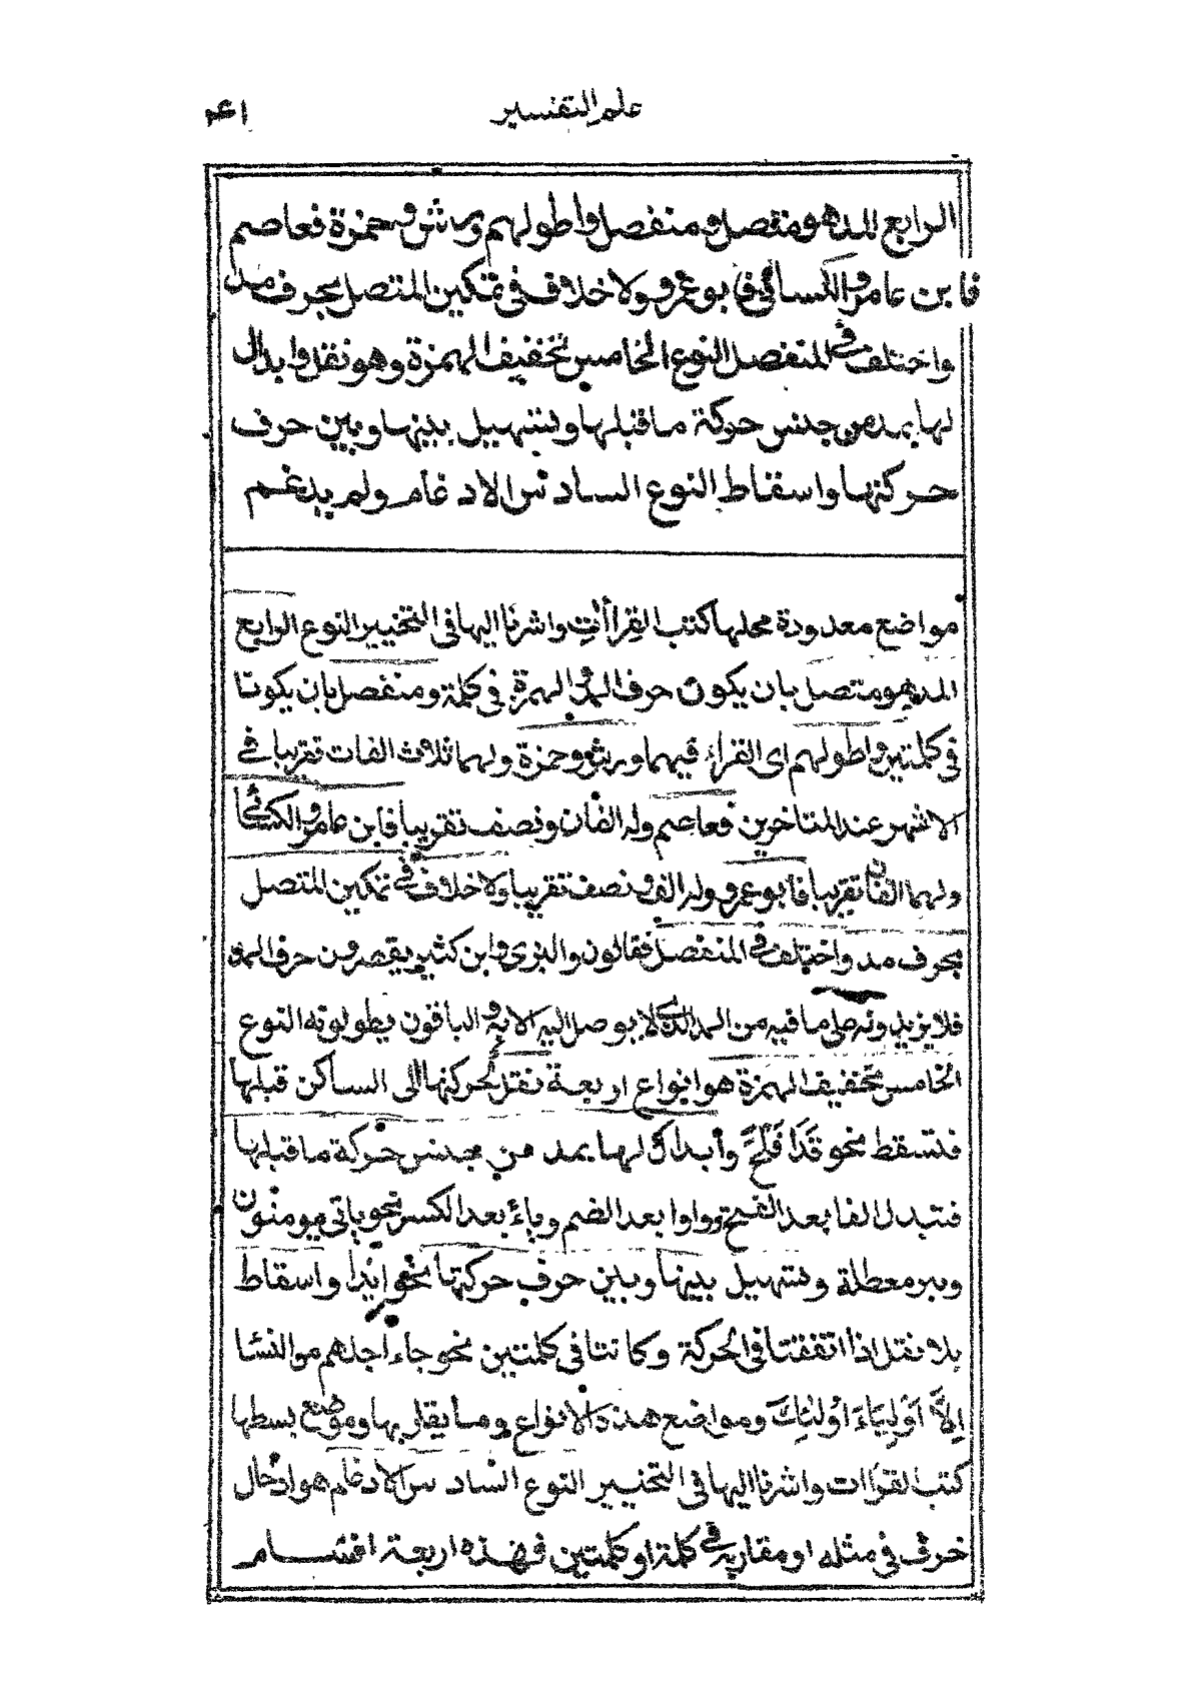 علم التفسير ٤١
الرابع المد هو متصل ومنفصل واطولهم ورش وحمزة فعاصم
فابن عامر والكسائي فابو عمرو ولا خلاف في تمكين المتصل بحرف مد
واختلف في المنفصل النوع الخامس تخفيف الهمزة وهو نقل وابدال
لها بمد من جنس حركة ما قبلها وتسهيل بينها وبين حرف
حركتها واسقاط النوع السادس الادغام ولم يدغم
مواضع معدودة محلها كتب القراأت واشرنا اليها في التخيير النوع الرابع
المد هو متصل بان يكون حرف المد والهمزة في كلمة ومنفصل بان يكونا
في كلمتين واطولهم اى القراء فيهما ورش وحمزة ولهما ثلاث الفات تقريبا في
الاشهر عند المتاخرين فعاصم وله الفان ونصف تقريبا فابن عامر والكسائي
ولهما الفان تقريبا فابو عمرو وله الف ونصف تقريبا ولا خلاف في تمكين المتصل
بحرف مد واختلف في المنفصل فقالون والبزى وابن كثير يقصرون حرف المد
فلا يزيدونه على ما فيه من المد الذي لا يوصل اليه الا به والباقون يطولونه النوع
الخامس تخفيف الهمزة هو انواع اربعة نقل لحركتها الى الساكن قبلها
فتسقط نحو قَدَ افْلَحَ وابدال لها بمد من جنس حركة ما قبلها
فتبدل الفا بعد الفتح وواوا بعد الضم وياء بعد الكسر نحو ياتى يومنون
وبير معطلة وتسهيل بينها وبين حرف حركتها نحو ائذا واسقاط
بلا نقل اذا اتفقتا في الحركة وكانتا في كلمتين نحو جاء اجلهم من النسا
اِلَّا اَوْلِيَاءُ اُولٰئِكَ ومواضع هذه الانواع وما يقاربها وموضع بسطها
كتب القراات واشرنا اليها في التخيير النوع السادس الادغام هو ادخال
حرف في مثله او مقاربه في كلمة او كلمتين فهذه اربعة اقسام